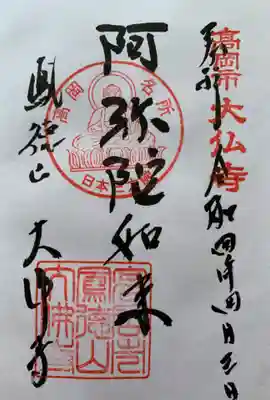 高岡市大仏寺
奉拝 令和四年四月三日
高岡名所
日本三
阿弥陀如来
鳳徳山
大佛寺
鳳徳山